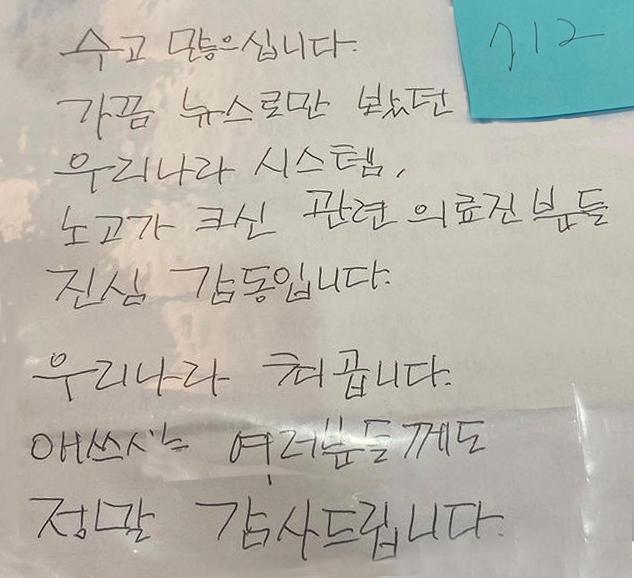 수고 많으십니다.
가끔 뉴스로만 봤던
우리나라 시스템,
노고가 크신 관련 의료진분들
진심 감동입니다.
우리나라 최곱니다.
애쓰시는 여러분들께도
정말 감사드립니다.